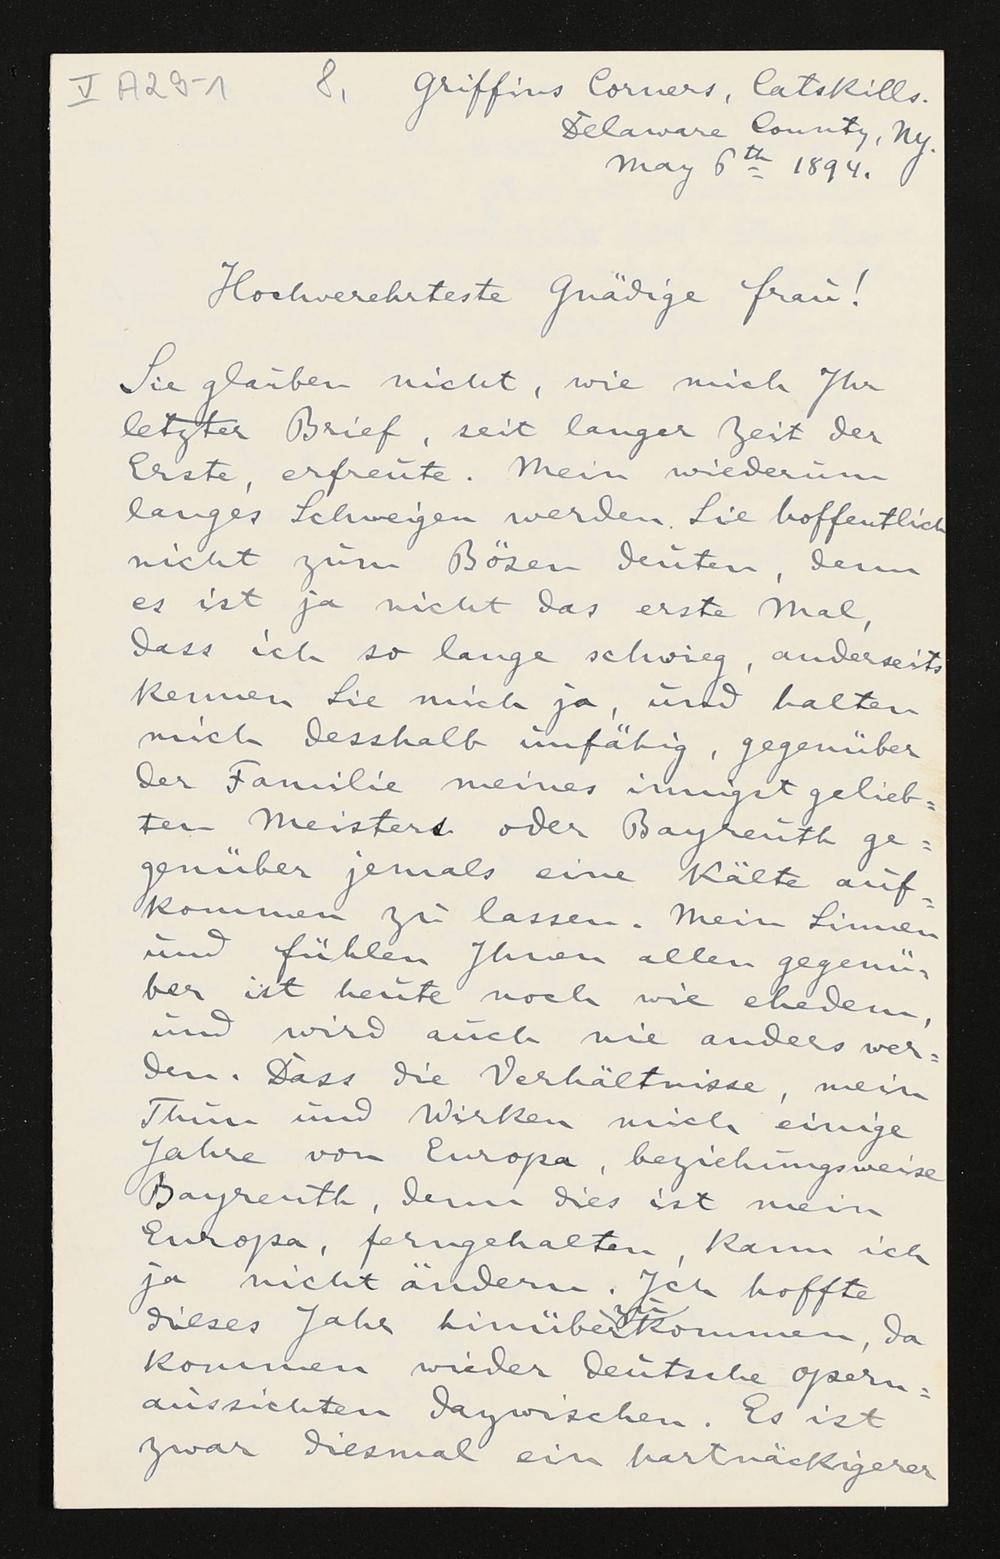 V A29-1 8, Griffins Corners, Catskills.
Delaware County, Ny.
May 6th 1894.
Hochverehrteste Gnädige Frau!
Sie glauben nicht, wie mich Ihr
letzter Brief, seit langer Zeit der
Erste, erfreute. Mein wiederum
langes Schweigen werden Sie hoffentlich
nicht zum Bösen deuten, denn
es ist ja nicht das erste Mal,
dass ich so lange schwieg, anderseits
kennen Sie mich ja, und halten
mich desshalb unfähig, gegenüber
der Familie meines innigst gelieb=
ten Meisters oder Bayreuth ge=
genüber jemals eine Kälte auf=
kommen zu lassen. Mein Sinnen
und fühlen Ihnen allen gegenü=
ber ist heute noch wie ehedem,
und wird auch nie anders wer=
den. Dass die Verhältnisse, mein
Thun und Wirken mich einige
Jahre von Europa, beziehungsweise
Bayreuth, denn dies ist mein
Europa, ferngehalten, kann ich
ja nicht ändern. Ich hoffte
dieses Jahr hinüber zu kommen, da
kommen wieder deutsche opern=
aussichten dazwischen. Es ist
zwar diesmal ein hartnäckigerer